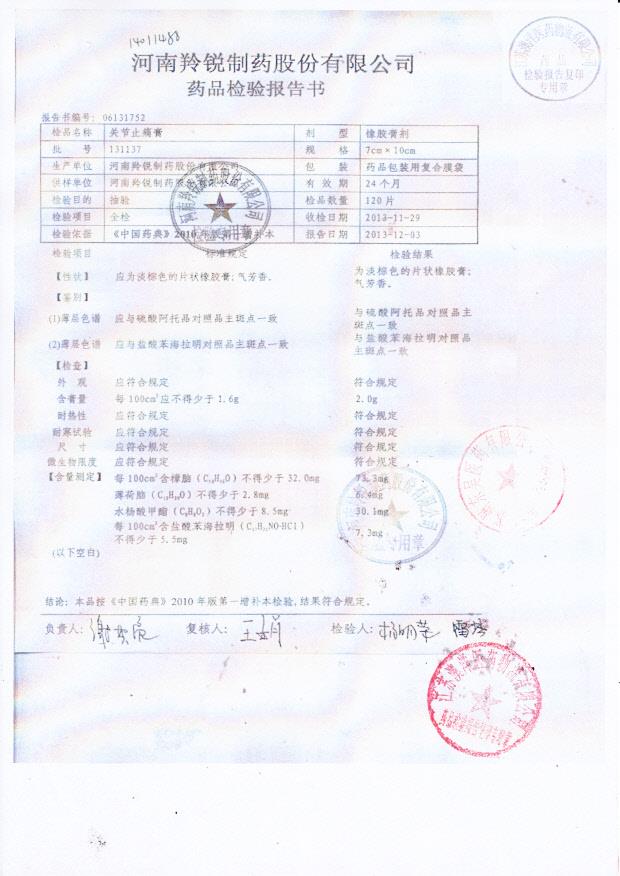 14011488
河南羚锐制药股份有限公司
药品检验报告书
检验报告复印
专用章
报告书编号: 06131752
检品名称 关节止痛膏 剂 型 橡胶膏剂
批 号 131137 规 格 7cm×10cm
生产单位 河南羚锐制药股份有限公司 包 装 药品包装用复合膜袋
供样单位 河南羚锐制药股份有限公司 有 效 期 24个月
检验目的 抽验 检品数量 120片
检验项目 全检 收检日期 2013-11-29
检验依据 《中国药典》2010年版第一增补本 报告日期 2013-12-03
检验项目 标准规定 检验结果
【性状】 应为淡棕色的片状橡胶膏;气芳香。 为淡棕色的片状橡胶膏;
气芳香。
【鉴别】
(1)薄层色谱 应与硫酸阿托品对照品主斑点一致 与硫酸阿托品对照品主
斑点一致
(2)薄层色谱 应与盐酸苯海拉明对照品主斑点一致 与盐酸苯海拉明对照品
主斑点一致
【检查】
外 观 应符合规定 符合规定
含膏量 每100cm²应不得少于1.6g 2.0g
耐热性 应符合规定 符合规定
耐寒试验 应符合规定 符合规定
尺 寸 应符合规定 符合规定
微生物限度 应符合规定 符合规定
【含量测定】 每100cm²含樟脑(C₁₀H₁₆O)不得少于32.0mg 73.3mg
薄荷脑(C₁₀H₂₀O)不得少于2.8mg 6.4mg
水杨酸甲酯(C₈H₈O₃)不得少于8.5mg 30.1mg
每100cm²含盐酸苯海拉明(C₁₇H₂₁NO·HCl)
不得少于5.5mg 7.3mg
(以下空白)
结论: 本品按《中国药典》2010年版第一增补本检验,结果符合规定。
负责人: 复核人: 检验人: